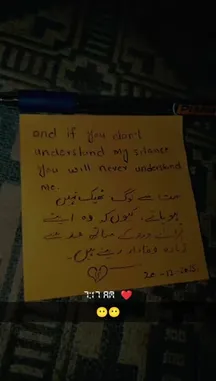 and if you don't
understand my silence
you will never understand
me.
بہت سے لوگ ٹھیک نہیں
ہو پاتے، کیوں کہ وہ اپنے
کے ساتھ حد سے
زیادہ وفادار رہتے ہیں۔
7:17 AM